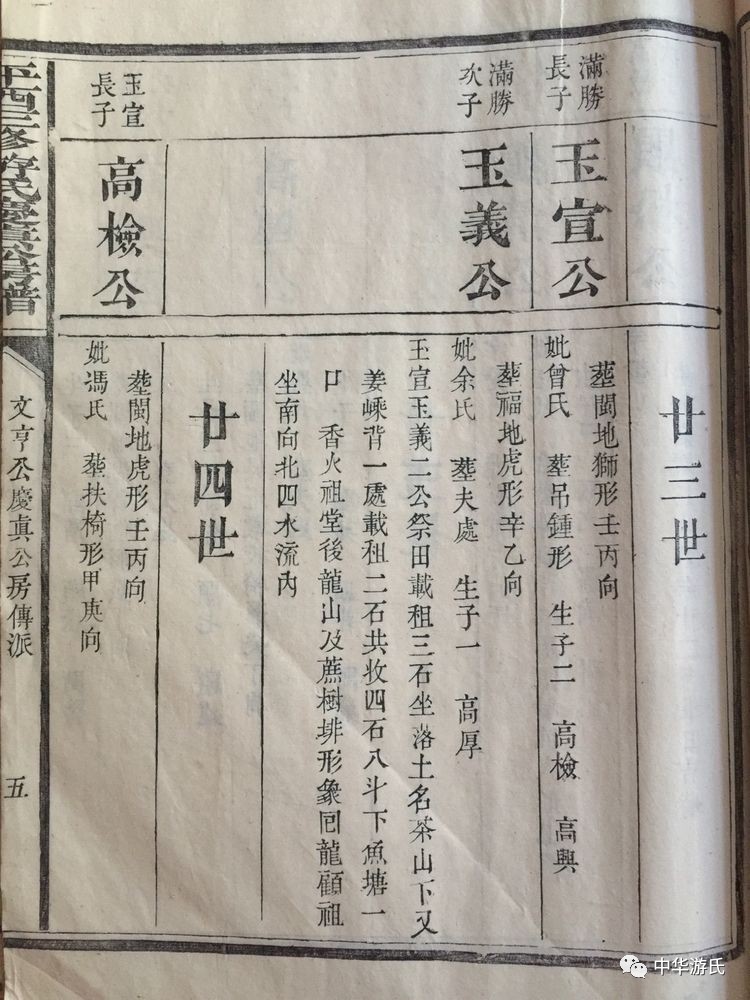 廿三世
滿勝
長子
玉宣公
葬閩地獅形壬丙向
妣曾氏 葬吊鍾形 生子二 高檢 高興
滿勝
次子
玉義公
葬福地虎形辛乙向
妣余氏 葬夫處 生子一 高厚
玉宣玉義二公祭田載租三石坐落土名茶山下又
姜嵊背一處載租二石共收四石八斗下魚塘一
口 香火祖堂後龍山及蕉樹排形象回龍顧祖
坐南向北四水流內
廿四世
玉宣
長子
高檢公
葬閩地虎形壬丙向
妣馮氏 葬扶椅形甲庚向
文亨公慶真公房傳派
五
中华游氏